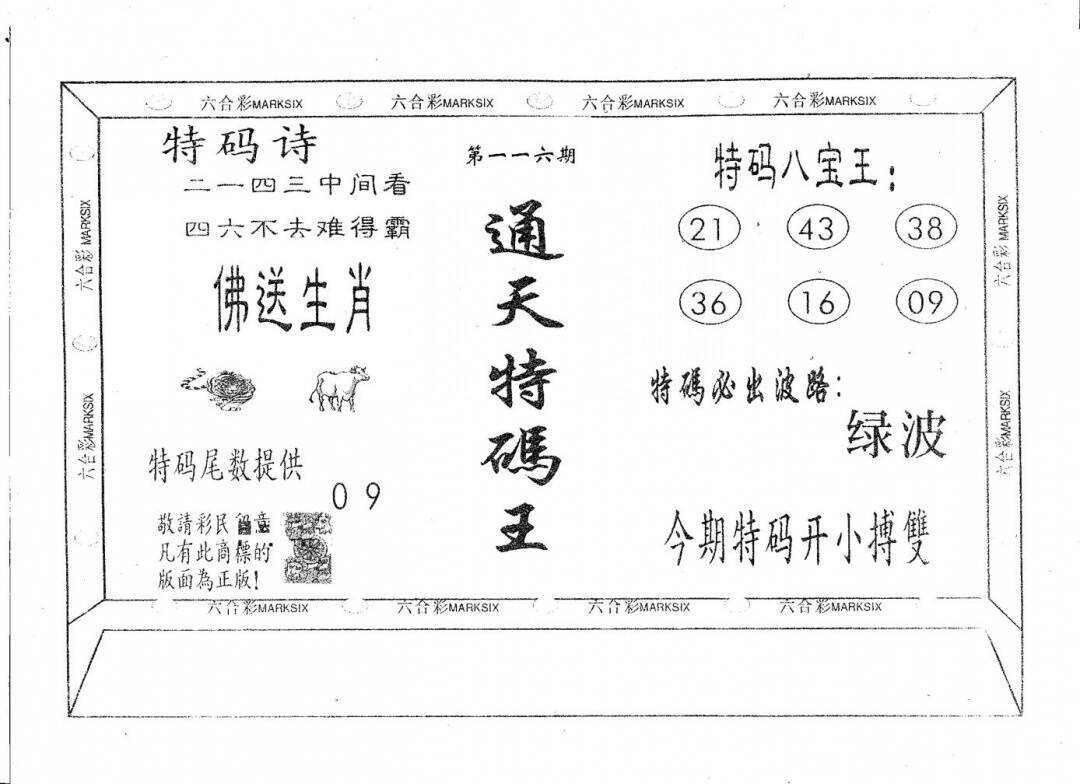 六合彩MARKSIX 六合彩MARKSIX 六合彩MARKSIX 六合彩MARKSIX
六合彩MARKSIX
六合彩MARKSIX
特码诗
二一四三中间看
四六不去难得霸
佛送生肖
特码尾数提供
09
敬請彩民留意
凡有此商標的
版面為正版!
第一一六期
通天特碼王
特码八宝王:
21 43 38
36 16 09
特碼必出波路:
绿波
今期特码开小搏雙
六合彩MARKSIX
六合彩MARKSIX
六合彩MARKSIX 六合彩MARKSIX 六合彩MARKSIX 六合彩MARKSIX